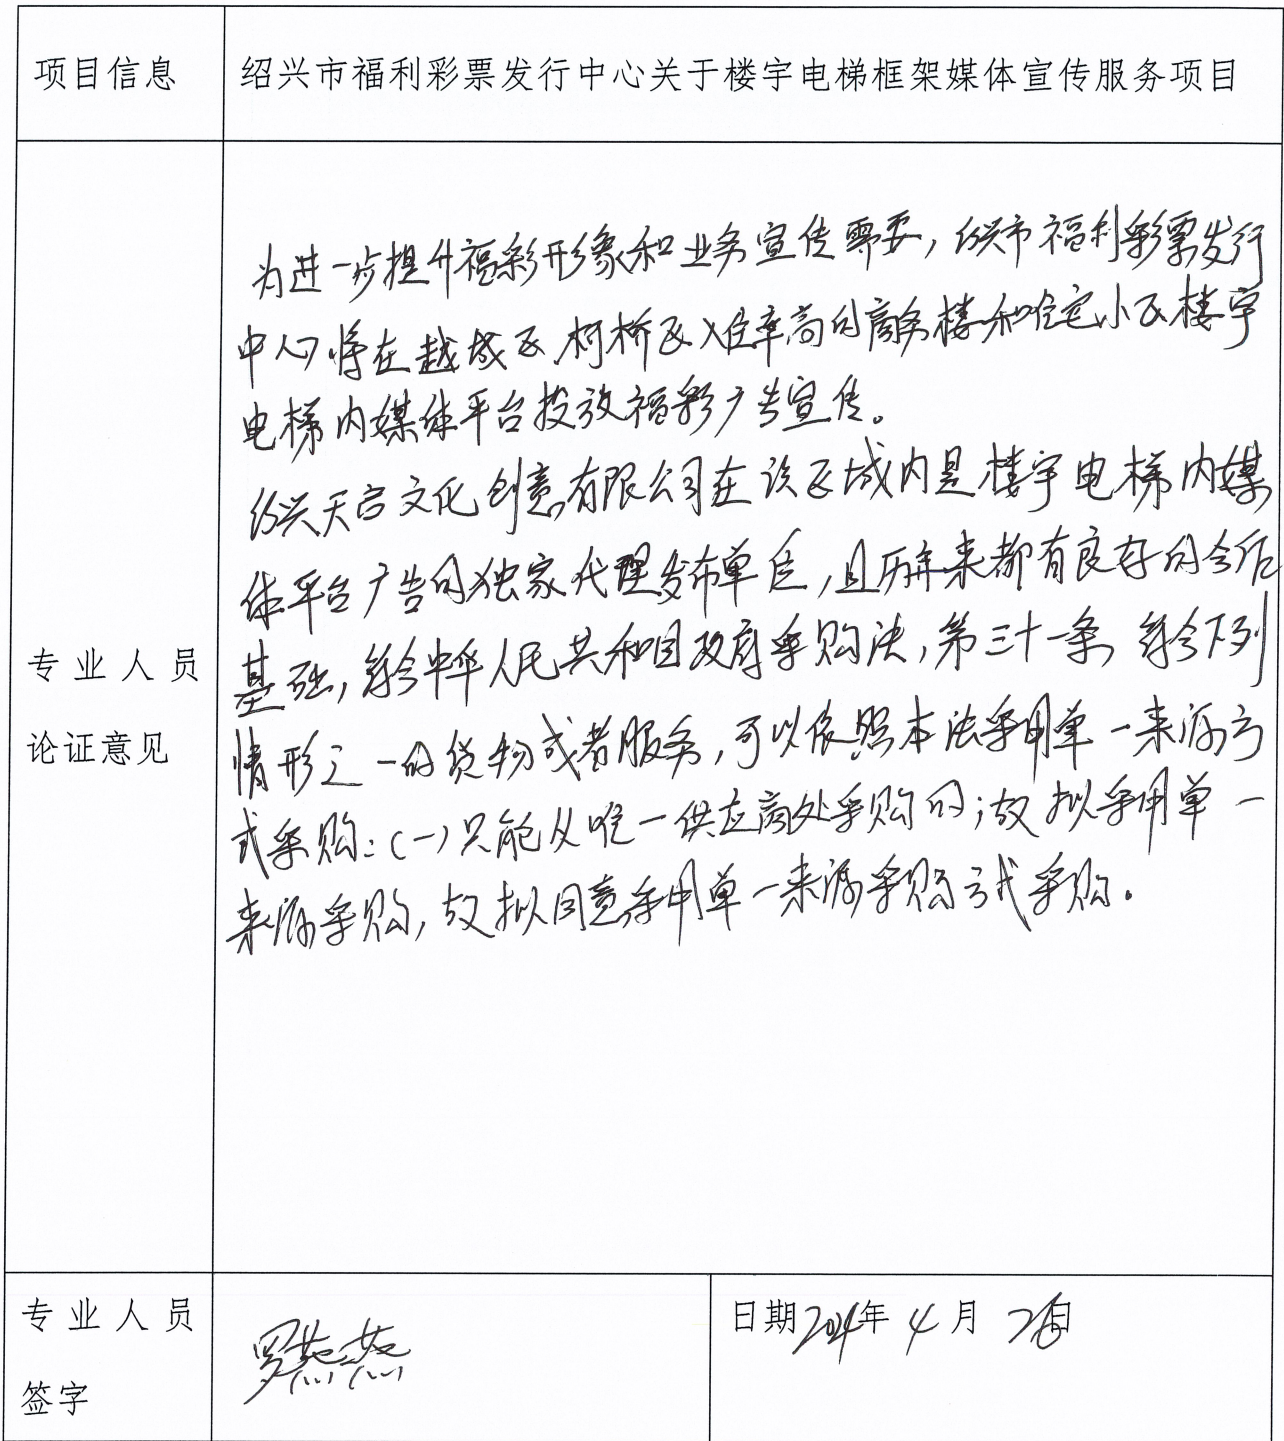 项目信息
绍兴市福利彩票发行中心关于楼宇电梯框架媒体宣传服务项目
专业人员
论证意见
为进一步提升福彩形象和业务宣传需要，绍兴市福利彩票发行
中心将在越城区、柯桥区入住率高的商务楼和住宅小区楼宇
电梯内媒体平台投放福彩广告宣传。
绍兴天宫文化创意有限公司在该区域内是楼宇电梯内媒
体平台广告的独家代理发布单位，且历年来都有良好的合作
基础，符合中华人民共和国政府采购法，第三十一条，符合下列
情形之一的货物或者服务，可以依照本法采用单一来源方
式采购：（一）只能从唯一供应商处采购的；故拟采用单一
来源采购，故拟同意采用单一来源采购方式采购。
专业人员
签字
罗燕燕
日期2024年4月26日